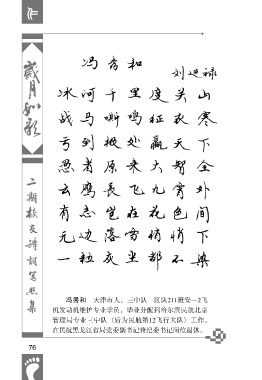 作
岁月如歌
二期校友诗词墨迹集
冯秀和
刘延禄
冰河千里度关山
战马嘶鸣征衣寒
亏到极处赢天下
愚者原来大智全
云鹰长飞九霄外
有志笔在花色间
元边落雪悄悄下
一粒灰尘都不染
冯秀和 天津市人。三中队一区队211班安—2飞
机发动机维护专业学员,毕业分配到哈尔滨民航北京
管理局专业三中队(后为民航第12飞行大队)工作。
在民航黑龙江省局党委副书记兼纪委书记岗位退休。
76